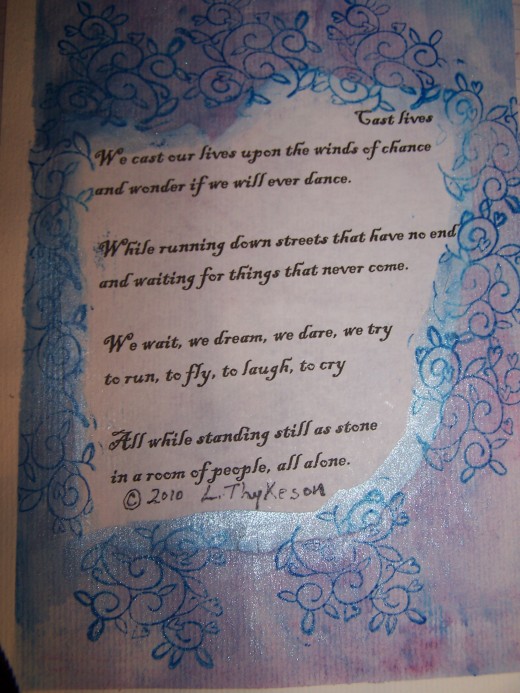 Cast lives
We cast our lives upon the winds of chance
and wonder if we will ever dance.
While running down streets that have no end
and waiting for things that never come.
We wait, we dream, we dare, we try
to run, to fly, to laugh, to cry
All while standing still as stone
in a room of people, all alone.
© 2010 L. Thykeson